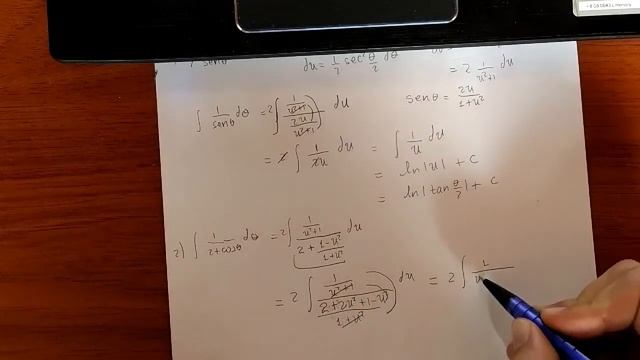 senθ du = 1/2 sec² θ/2 dθ
= 2 1/(u²+1) du
senθ = 2u/(1+u²)
∫ 1/senθ dθ = 2∫ (1/(u²+1))/(2u/(u²+1)) du
= 2 ∫ 1/2u du = ∫ 1/u du
= ln|u| + c
= ln|tan θ/2| + c
2) ∫ 1/(2+cosθ) dθ = 2∫ (1/(u²+1))/(2 + (1-u²)/(1+u²)) du
= 2 ∫ (1/(u²+1))/((2+2u²+1-u²)/(1+u²)) du = 2 ∫ 1/u